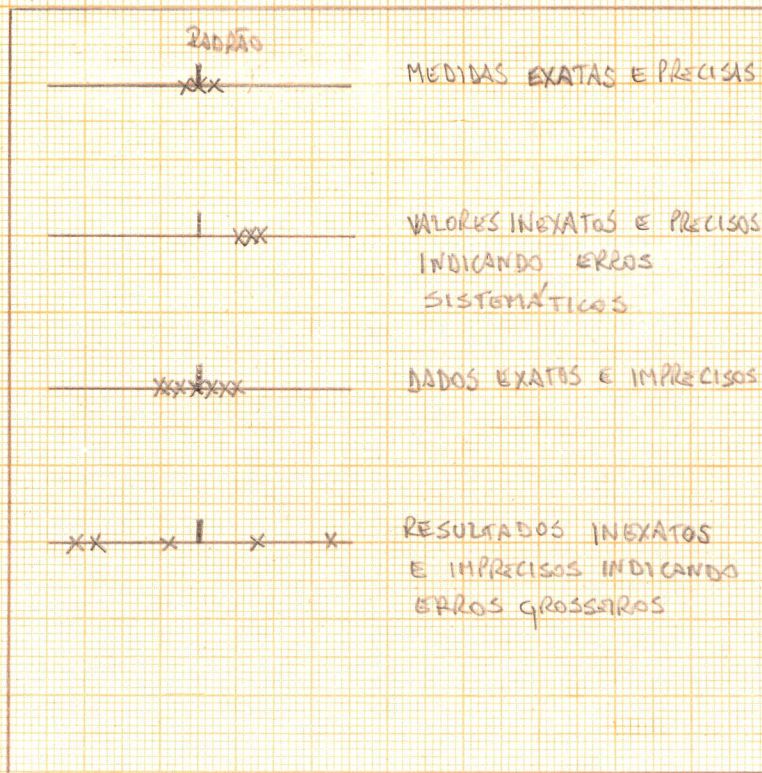 PADRÃO
MEDIDAS EXATAS E PRECISAS
VALORES INEXATOS E PRECISOS
INDICANDO ERROS
SISTEMÁTICOS
DADOS EXATOS E IMPRECISOS
RESULTADOS INEXATOS
E IMPRECISOS INDICANDO
ERROS GROSSEIROS